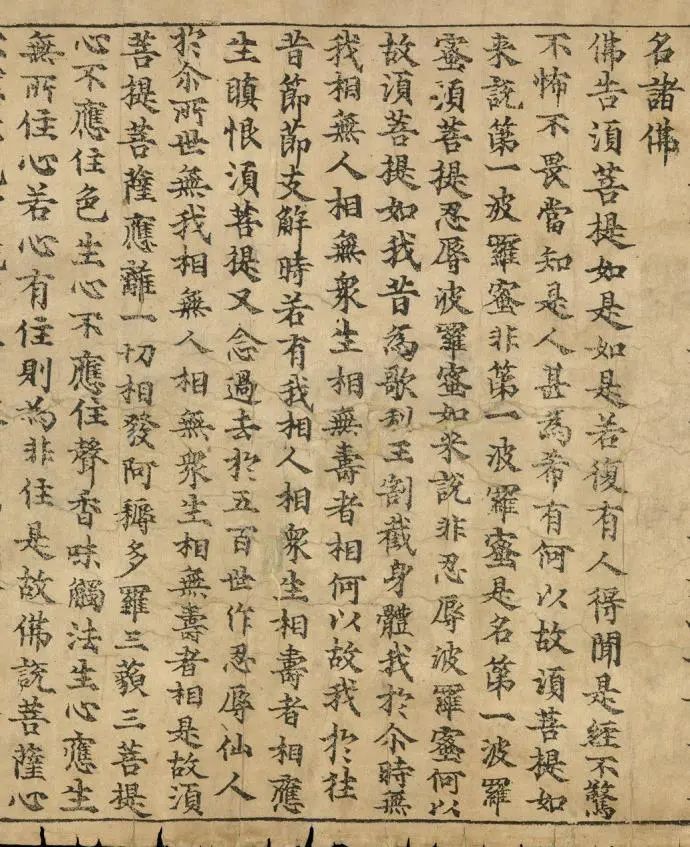 名諸佛
佛告須菩提如是如是若復有人得聞是經不驚
不怖不畏當知是人甚為希有何以故須菩提如
来說第一波羅蜜非第一波羅蜜是名第一波羅
蜜須菩提忍辱波羅蜜如来說非忍辱波羅蜜何以
故須菩提如我昔為歌利王割截身體我於尒時無
我相無人相無衆生相無壽者相何以故我於往
昔節節支解時若有我相人相衆生相壽者相應
生瞋恨須菩提又念過去於五百世作忍辱仙人
於尒所世無我相無人相無衆生相無壽者相是故須
菩提菩薩應離一切相發阿耨多羅三藐三菩提
心不應住色生心不應住聲香味觸法生心應生
無所住心若心有住則為非住是故佛說菩薩心